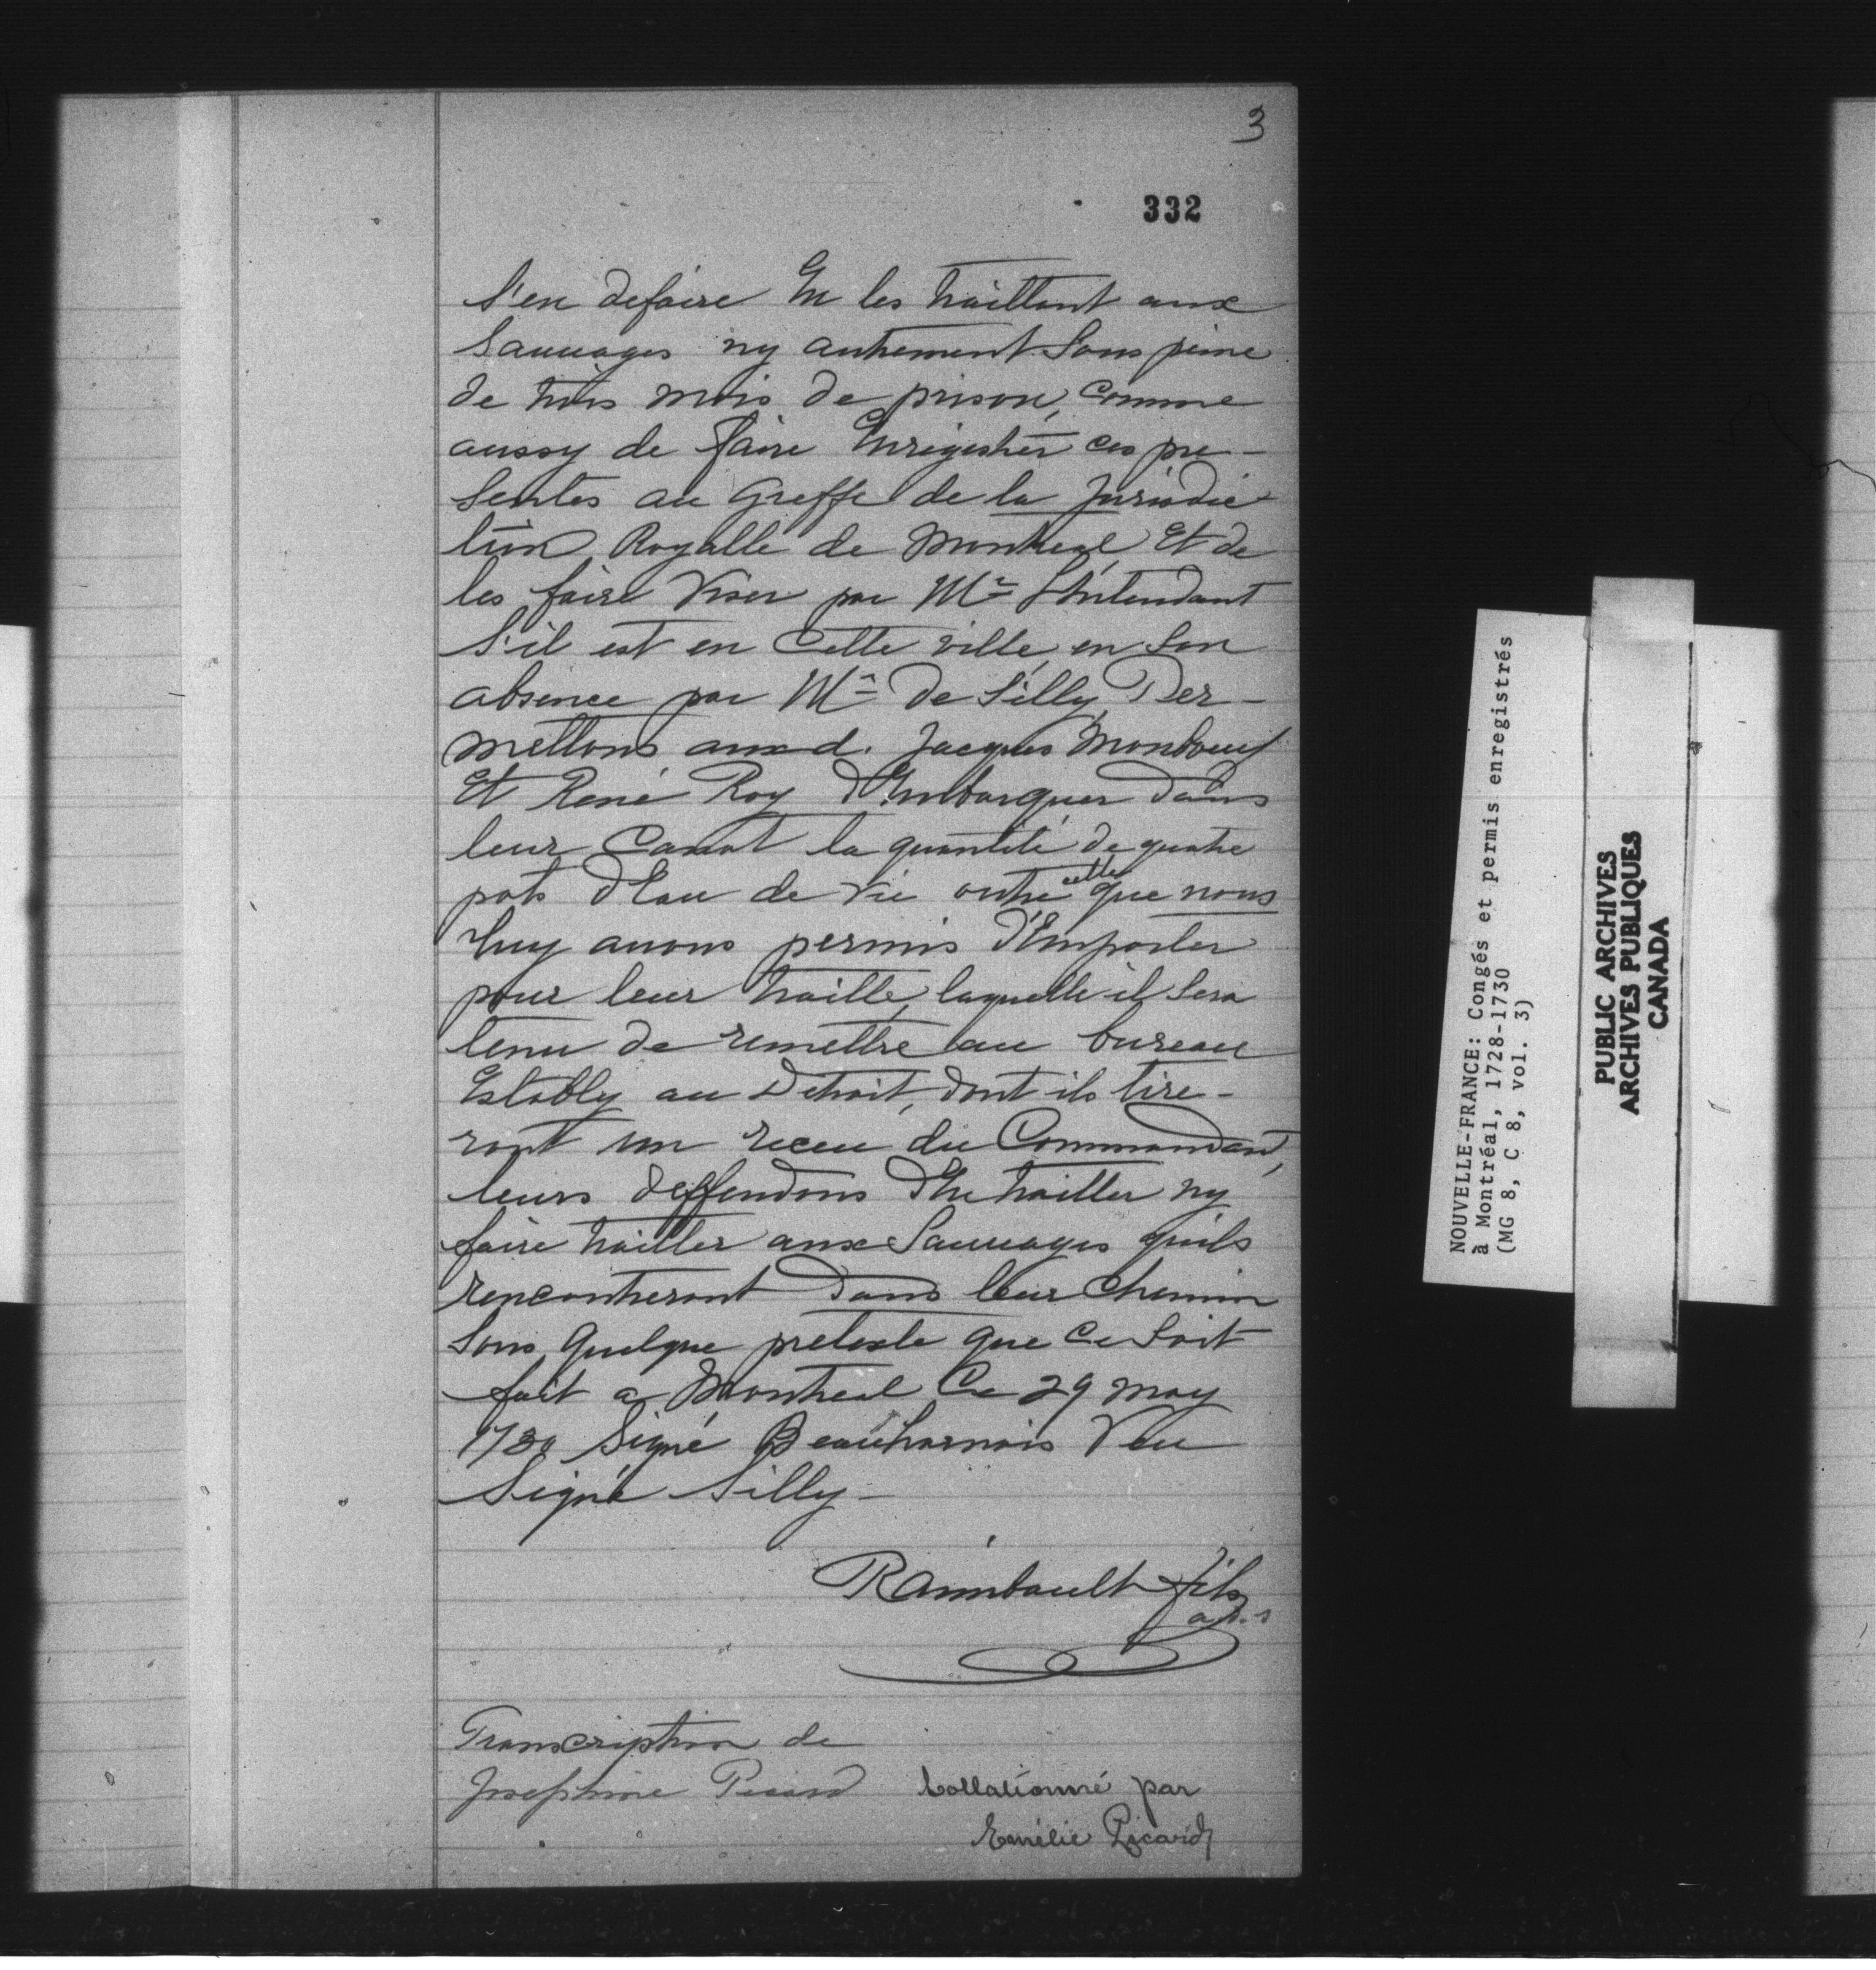 3
332
S'en defaire En les traittant aux
Sauuages ny autrement Sous peine
de trois mois de prison, comme
aussy de faire Enregistrer ces pre-
Sentes au Greffe de la Jurisdic-
tion Royalle de Montreal Et de
les faire Viser par Mr L'Intendant
S'il est en Cette ville, en Son
absence par Mr De Silly, Per-
mettons aux d. Jacques Monbœuf
Et René Roy d'Embarquer dans
leur Canot la quantité de quatre
pots d'Eau de vie outre celle que nous
luy auons permis d'Emporter
pour leur traitte, laquelle il Sera
tenu de remettre au bureau
Estably au Detroit, dont ils tire-
ront un receu du Commandant,
leurs deffendons d'En traitter ny
faire traitter aux Sauuages quils
rencontreront dans leur Chemin
Sous quelque pretexte que Ce Soit
fait a Montreal Ce 29 may
1730 Signé Beauharnois Veu
Signé Silly-
Raimbault fils
Transcription de
Josephine Picard Collationné par
Emélie Picard
NOUVELLE-FRANCE: Congés et permis enregistrés
à Montréal, 1728-1730
(MG 8, C 8, vol. 3)
PUBLIC ARCHIVES
ARCHIVES PUBLIQUES
CANADA